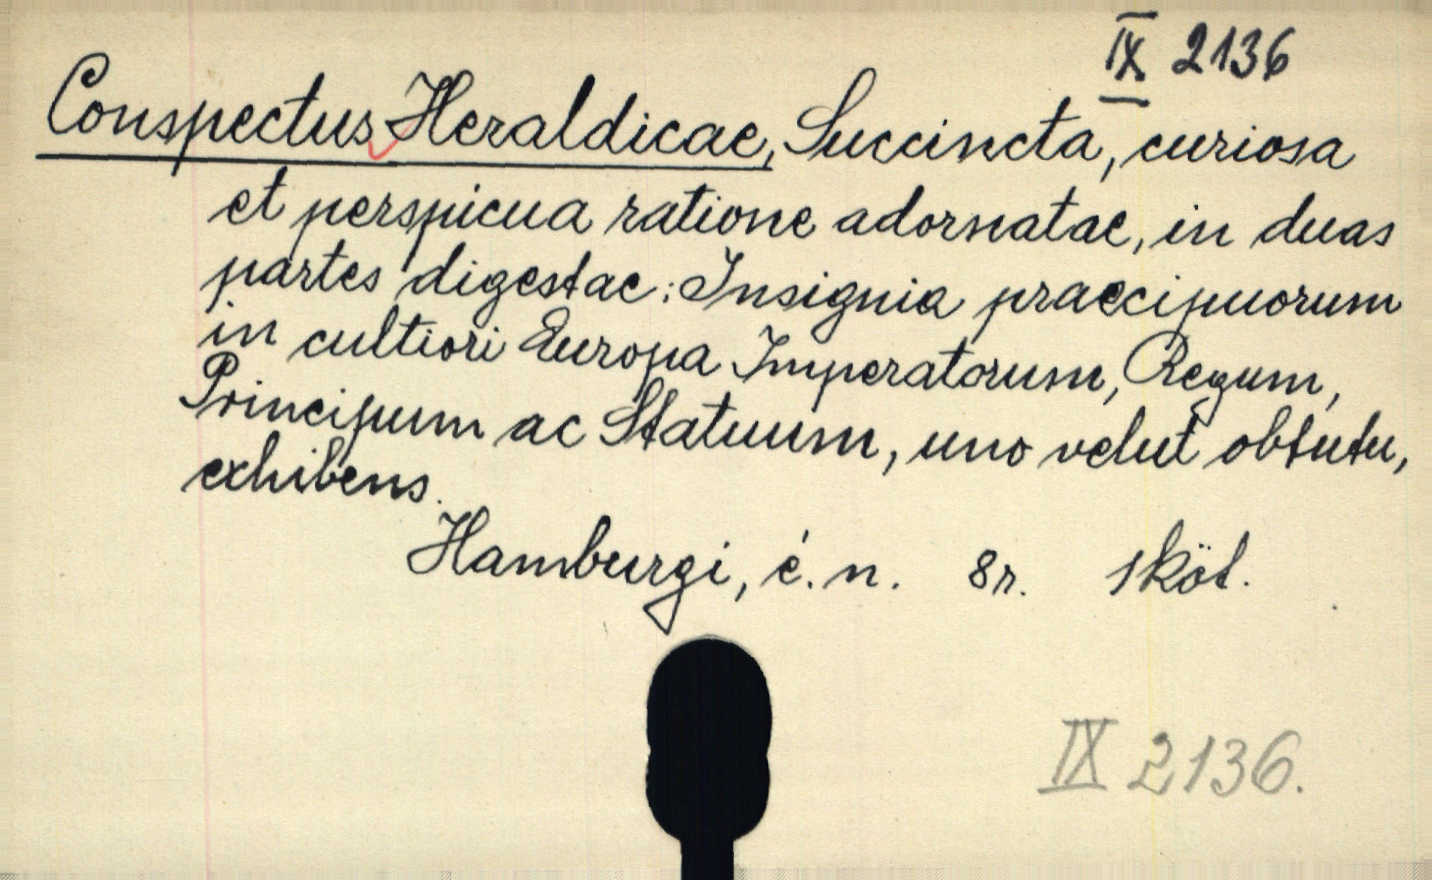 IX 2136
Conspectus Heraldicae, Succincta, curiosa
et perspicua ratione adornatae, in duas
partes digestae: Insignia praecipuorum
in cultiori Europa Imperatorum, Regum,
Principum ac Statuum, uno velut obtutu,
exhibens.
Hamburgi, é. n. 8r. 1 köt.
IX 2136.